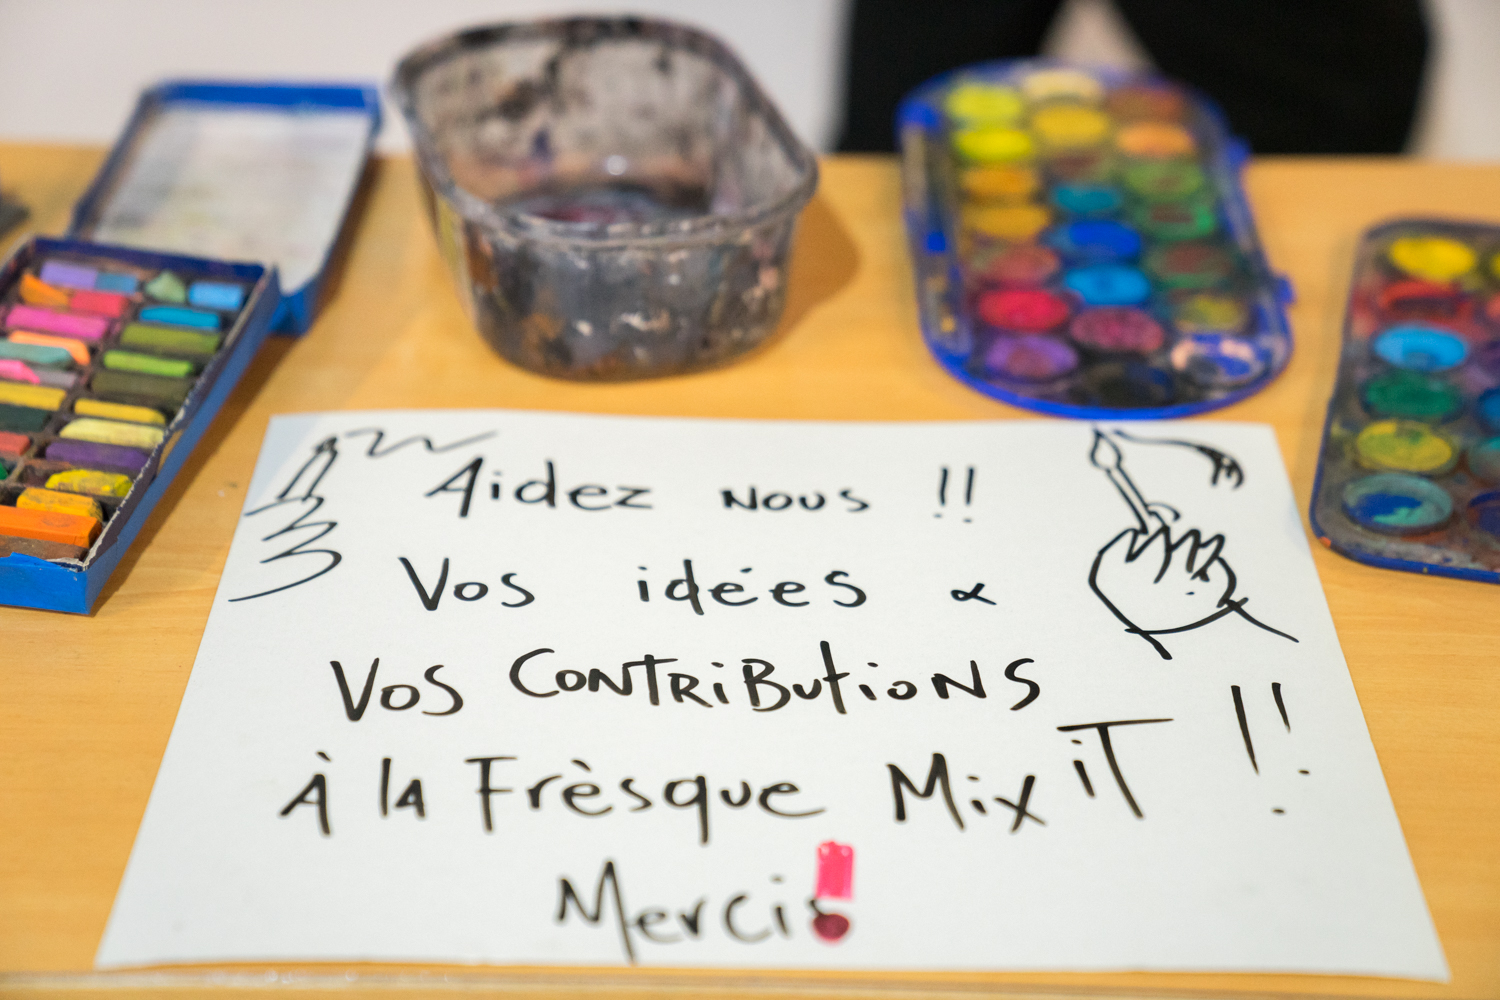 Aidez nous !!
Vos idées &
Vos Contributions
à la Frèsque Mix iT !!
Merci!